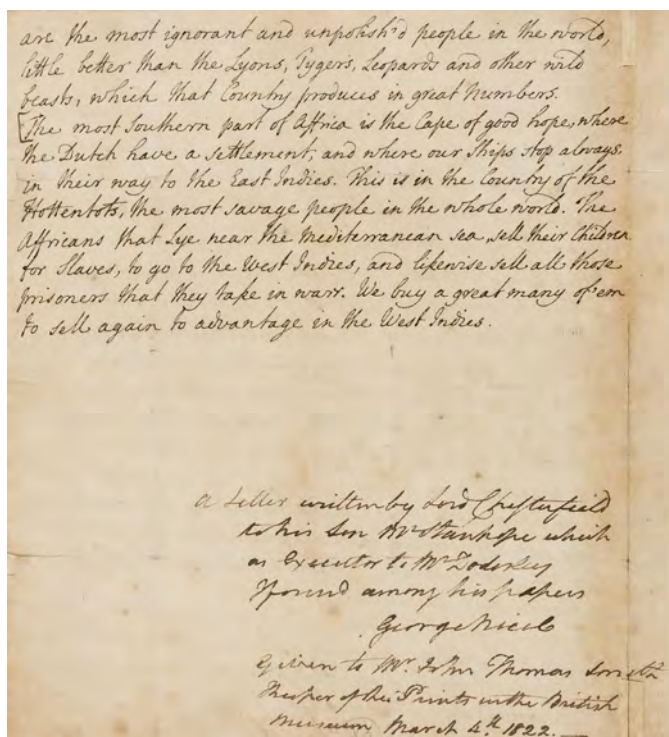 are the most ignorant and unpolish'd people in the world,
little better than the Lyons, Tygers, Leopards and other wild
beasts, which that Country produces in great Numbers.
[The most Southern part of Affrica is the Cape of good hope, where
the Dutch have a settlement, and where our Ships stop always
in their way to the East Indies. This is in the Country of the
Hottentots, the most savage people in the whole world. The
Affricans that Lye near the Mediterranean sea, sell their Children
for Slaves, to go to the West Indies, and likewise sell all those
prisoners that they take in warr. We buy a great many of 'em
to sell again to advantage in the West Indies.
A Letter written by Lord Chesterfield
to his Son Mr Stanhope which
as Executor to Mr
I found among his papers
George Nicol
Given to Mr. John Thomas Smith
Keeper of the Prints in the British
Museum March 4th. 1822.